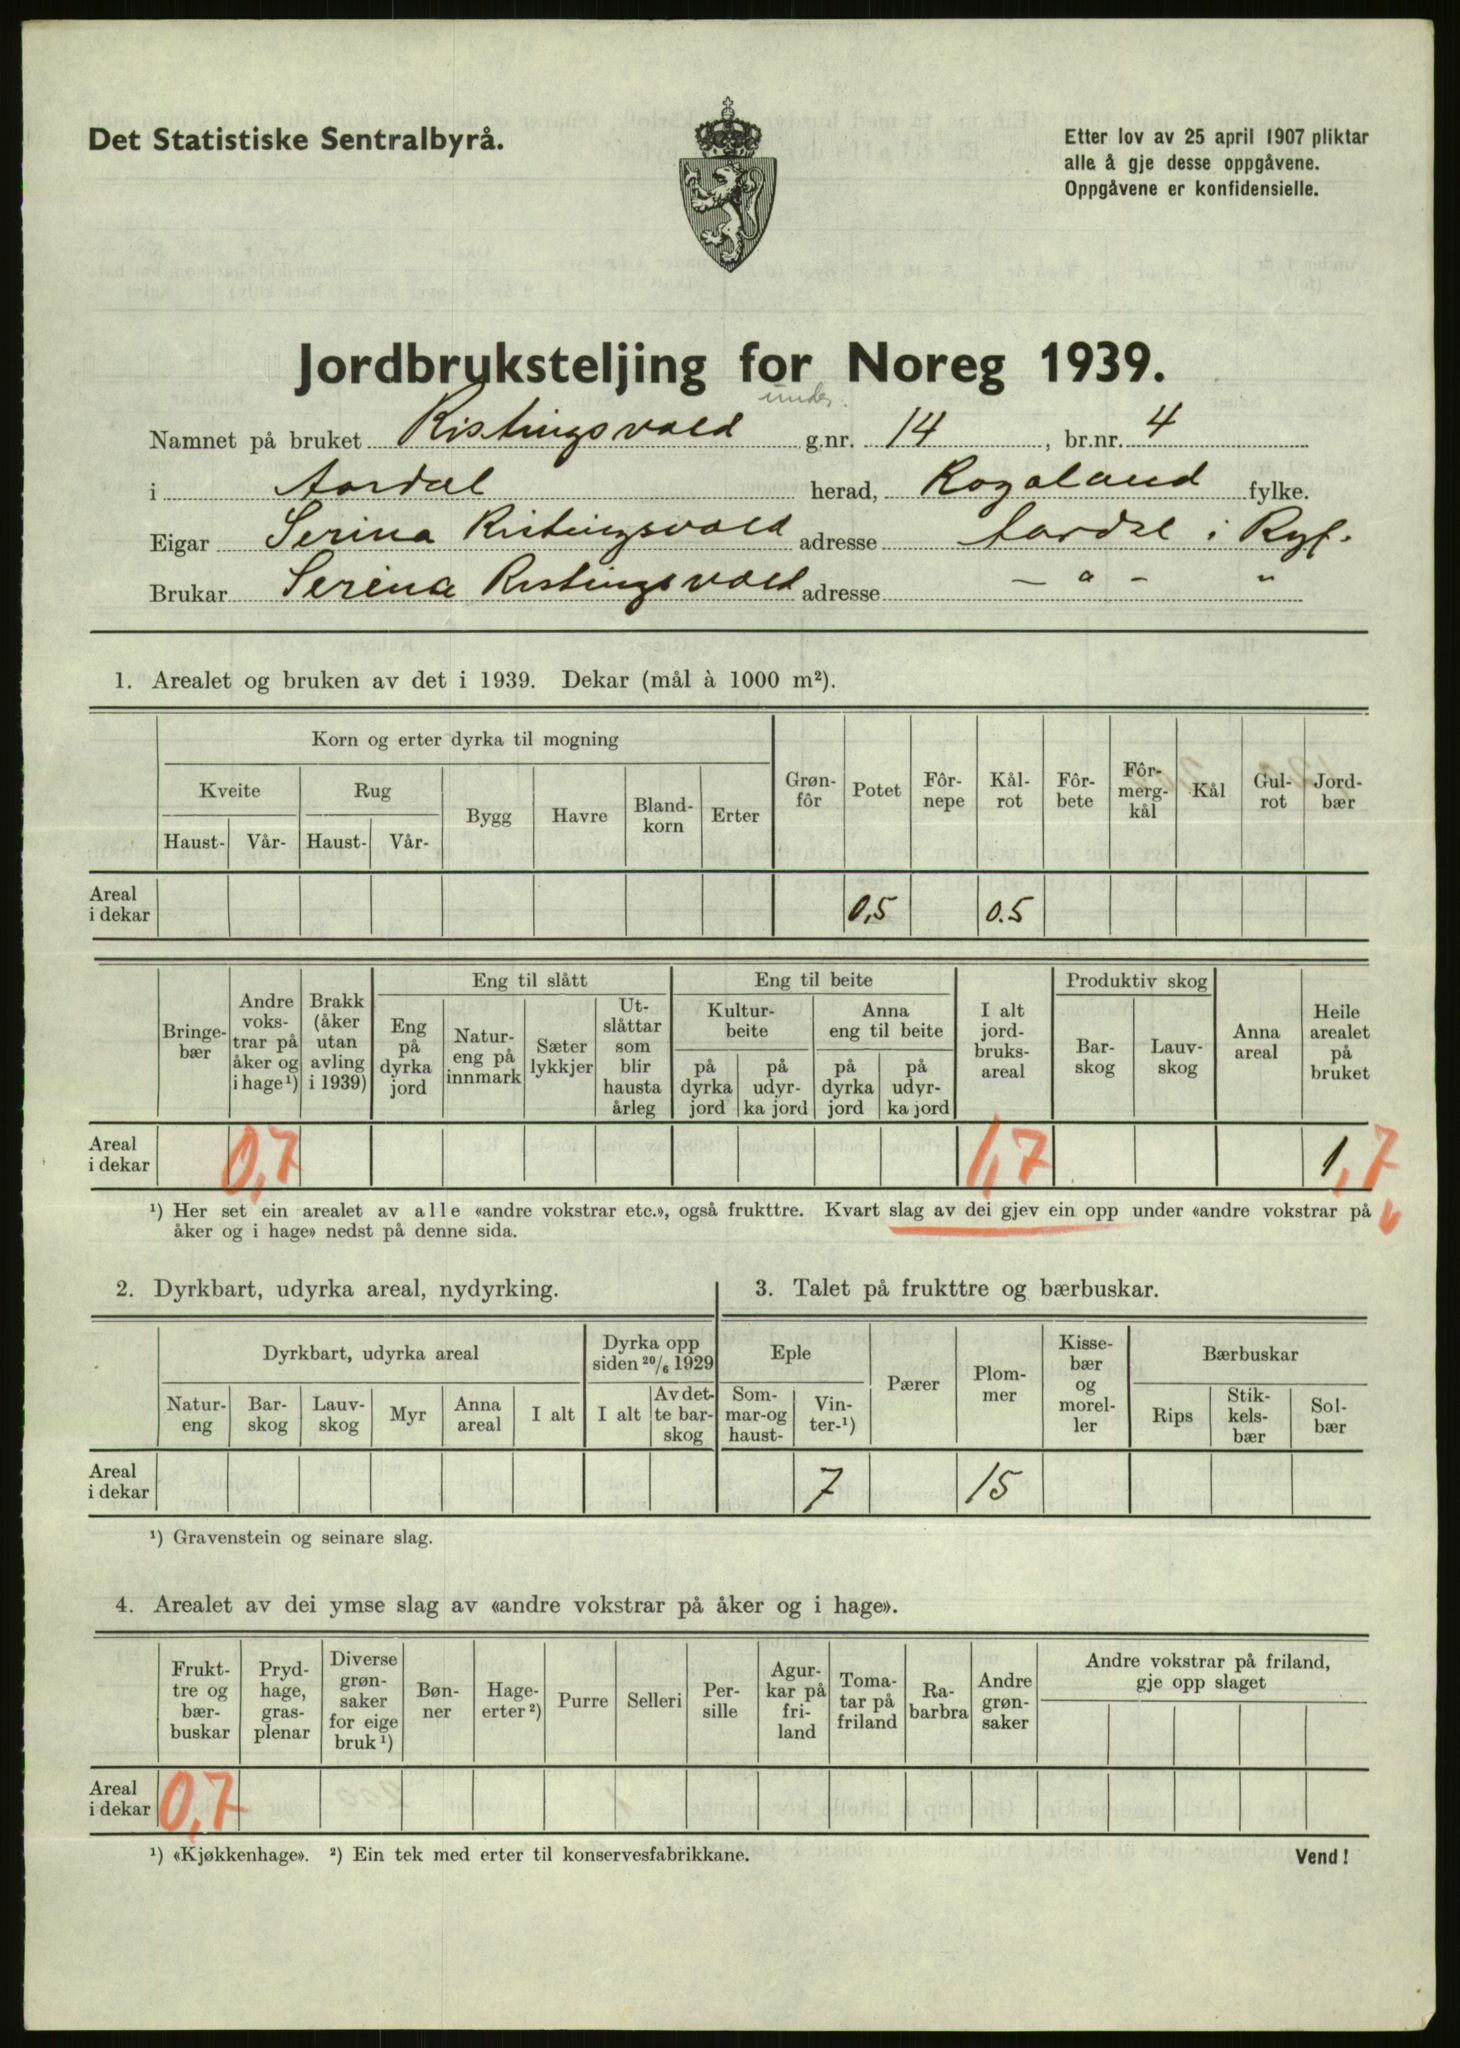 Det Statistiske Sentralbyrå.
Etter lov av 25 april 1907 pliktar
alle å gje desse oppgåvene.
Oppgåvene er konfidensielle.
Jordbruksteljing for Noreg 1939.
under.
Namnet på bruket Ristingsvold g.nr. 14, br.nr. 4
i Aardal herad, Rogaland fylke.
Eigar Serina Ristingsvold adresse Aardal i Ryf.
Brukar Serina Ristingsvold adresse — " — "
1. Arealet og bruken av det i 1939. Dekar (mål à 1000 m²).
Korn og erter dyrka til mogning
Kveite Rug
Haust- Vår- Haust- Vår- Bygg Havre Bland-korn Erter Grøn-fôr Potet Fôr-nepe Kål-rot Fôr-bete Fôr-merg-kål Kål Gul-rot Jord-bær
Areal i dekar 0,5 0.5
Eng til slått Eng til beite Produktiv skog
Kultur-beite Anna eng til beite
Bringe-bær Andre voks-trar på åker og i hage¹) Brakk (åker utan avling i 1939) Eng på dyrka jord Natur-eng på innmark Sæter lykkjer Ut-slåttar som blir hausta årleg på dyrka jord på udyr-ka jord på dyrka jord på udyr-ka jord I alt jord-bruks-areal Bar-skog Lauv-skog Anna areal Heile arealet på bruket
Areal i dekar 0,7 1,7 1,7
¹) Her set ein arealet av alle «andre vokstrar etc.», også frukttre. Kvart slag av dei gjev ein opp under «andre vokstrar på
åker og i hage» nedst på denne sida.
2. Dyrkbart, udyrka areal, nydyrking.
Dyrkbart, udyrka areal Dyrka opp siden 20/6 1929
Natur-eng Bar-skog Lauv-skog Myr Anna areal I alt I alt Av det-te bar-skog
Areal i dekar
3. Talet på frukttre og bærbuskar.
Eple Pærer Plom-mer Kisse-bær og morel-ler Bærbuskar
Som-mar-og haust- Vin-ter-¹) Rips Stik-kels-bær Sol-bær
7 15
¹) Gravenstein og seinare slag.
4. Arealet av dei ymse slag av «andre vokstrar på åker og i hage».
Frukt-tre og bær-buskar Pryd-hage, gras-plenar Diverse grøn-saker for eige bruk¹) Bøn-ner Hage-erter²) Purre Selleri Per-sille Agur-kar på fri-land Toma-tar på friland Ra-barbra Andre grøn-saker Andre vokstrar på friland, gje opp slaget
Areal i dekar 0,7
¹) «Kjøkkenhage». ²) Ein tek med erter til konservesfabrikkane.
Vend!